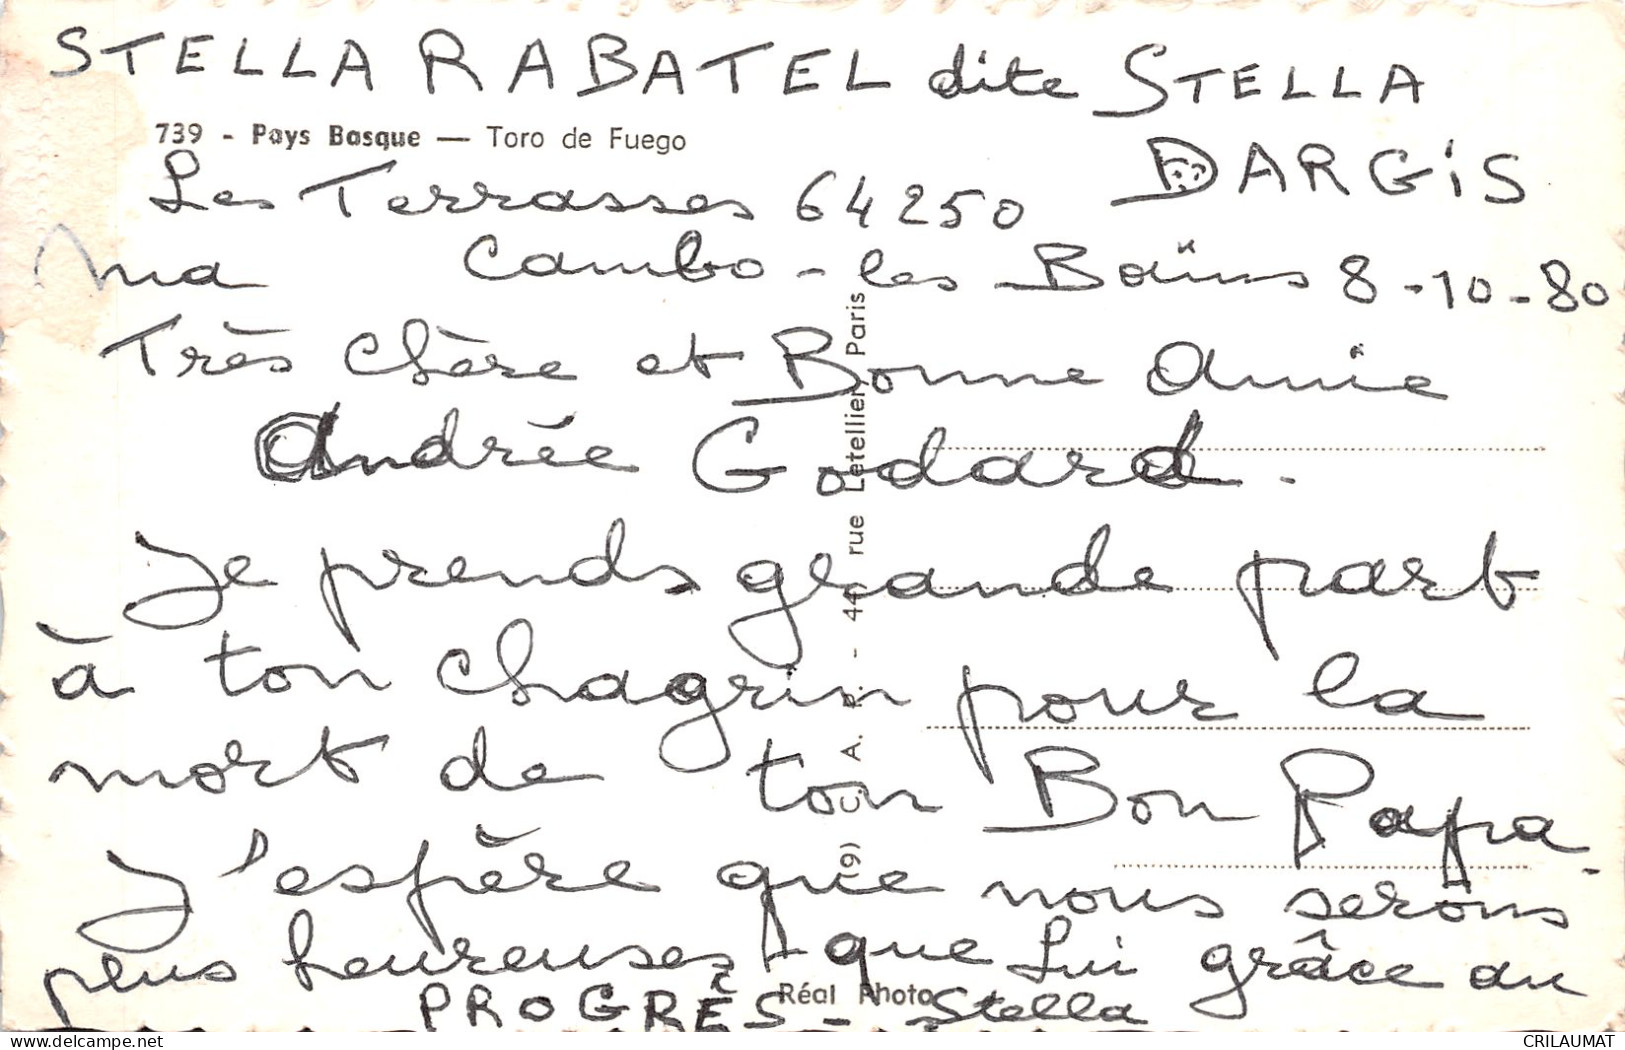 STELLA RABATEL dite STELLA
DARGiS
739 - Pays Basque — Toro de Fuego
Les Terrasses 64250
Cambo-les Bains 8-10-80
Ma
Très Chère et Bonne Amie
Andrée Godard.
Je prends grande part
à ton chagrin pour la
mort de ton Bon Papa.
J'espère que nous serons
plus heureuses que Lui grâce au
PROGRÈS - Stella
(9) C. A. P. - 44, rue Letellier, Paris
Réal Photo
CRILAUMAT